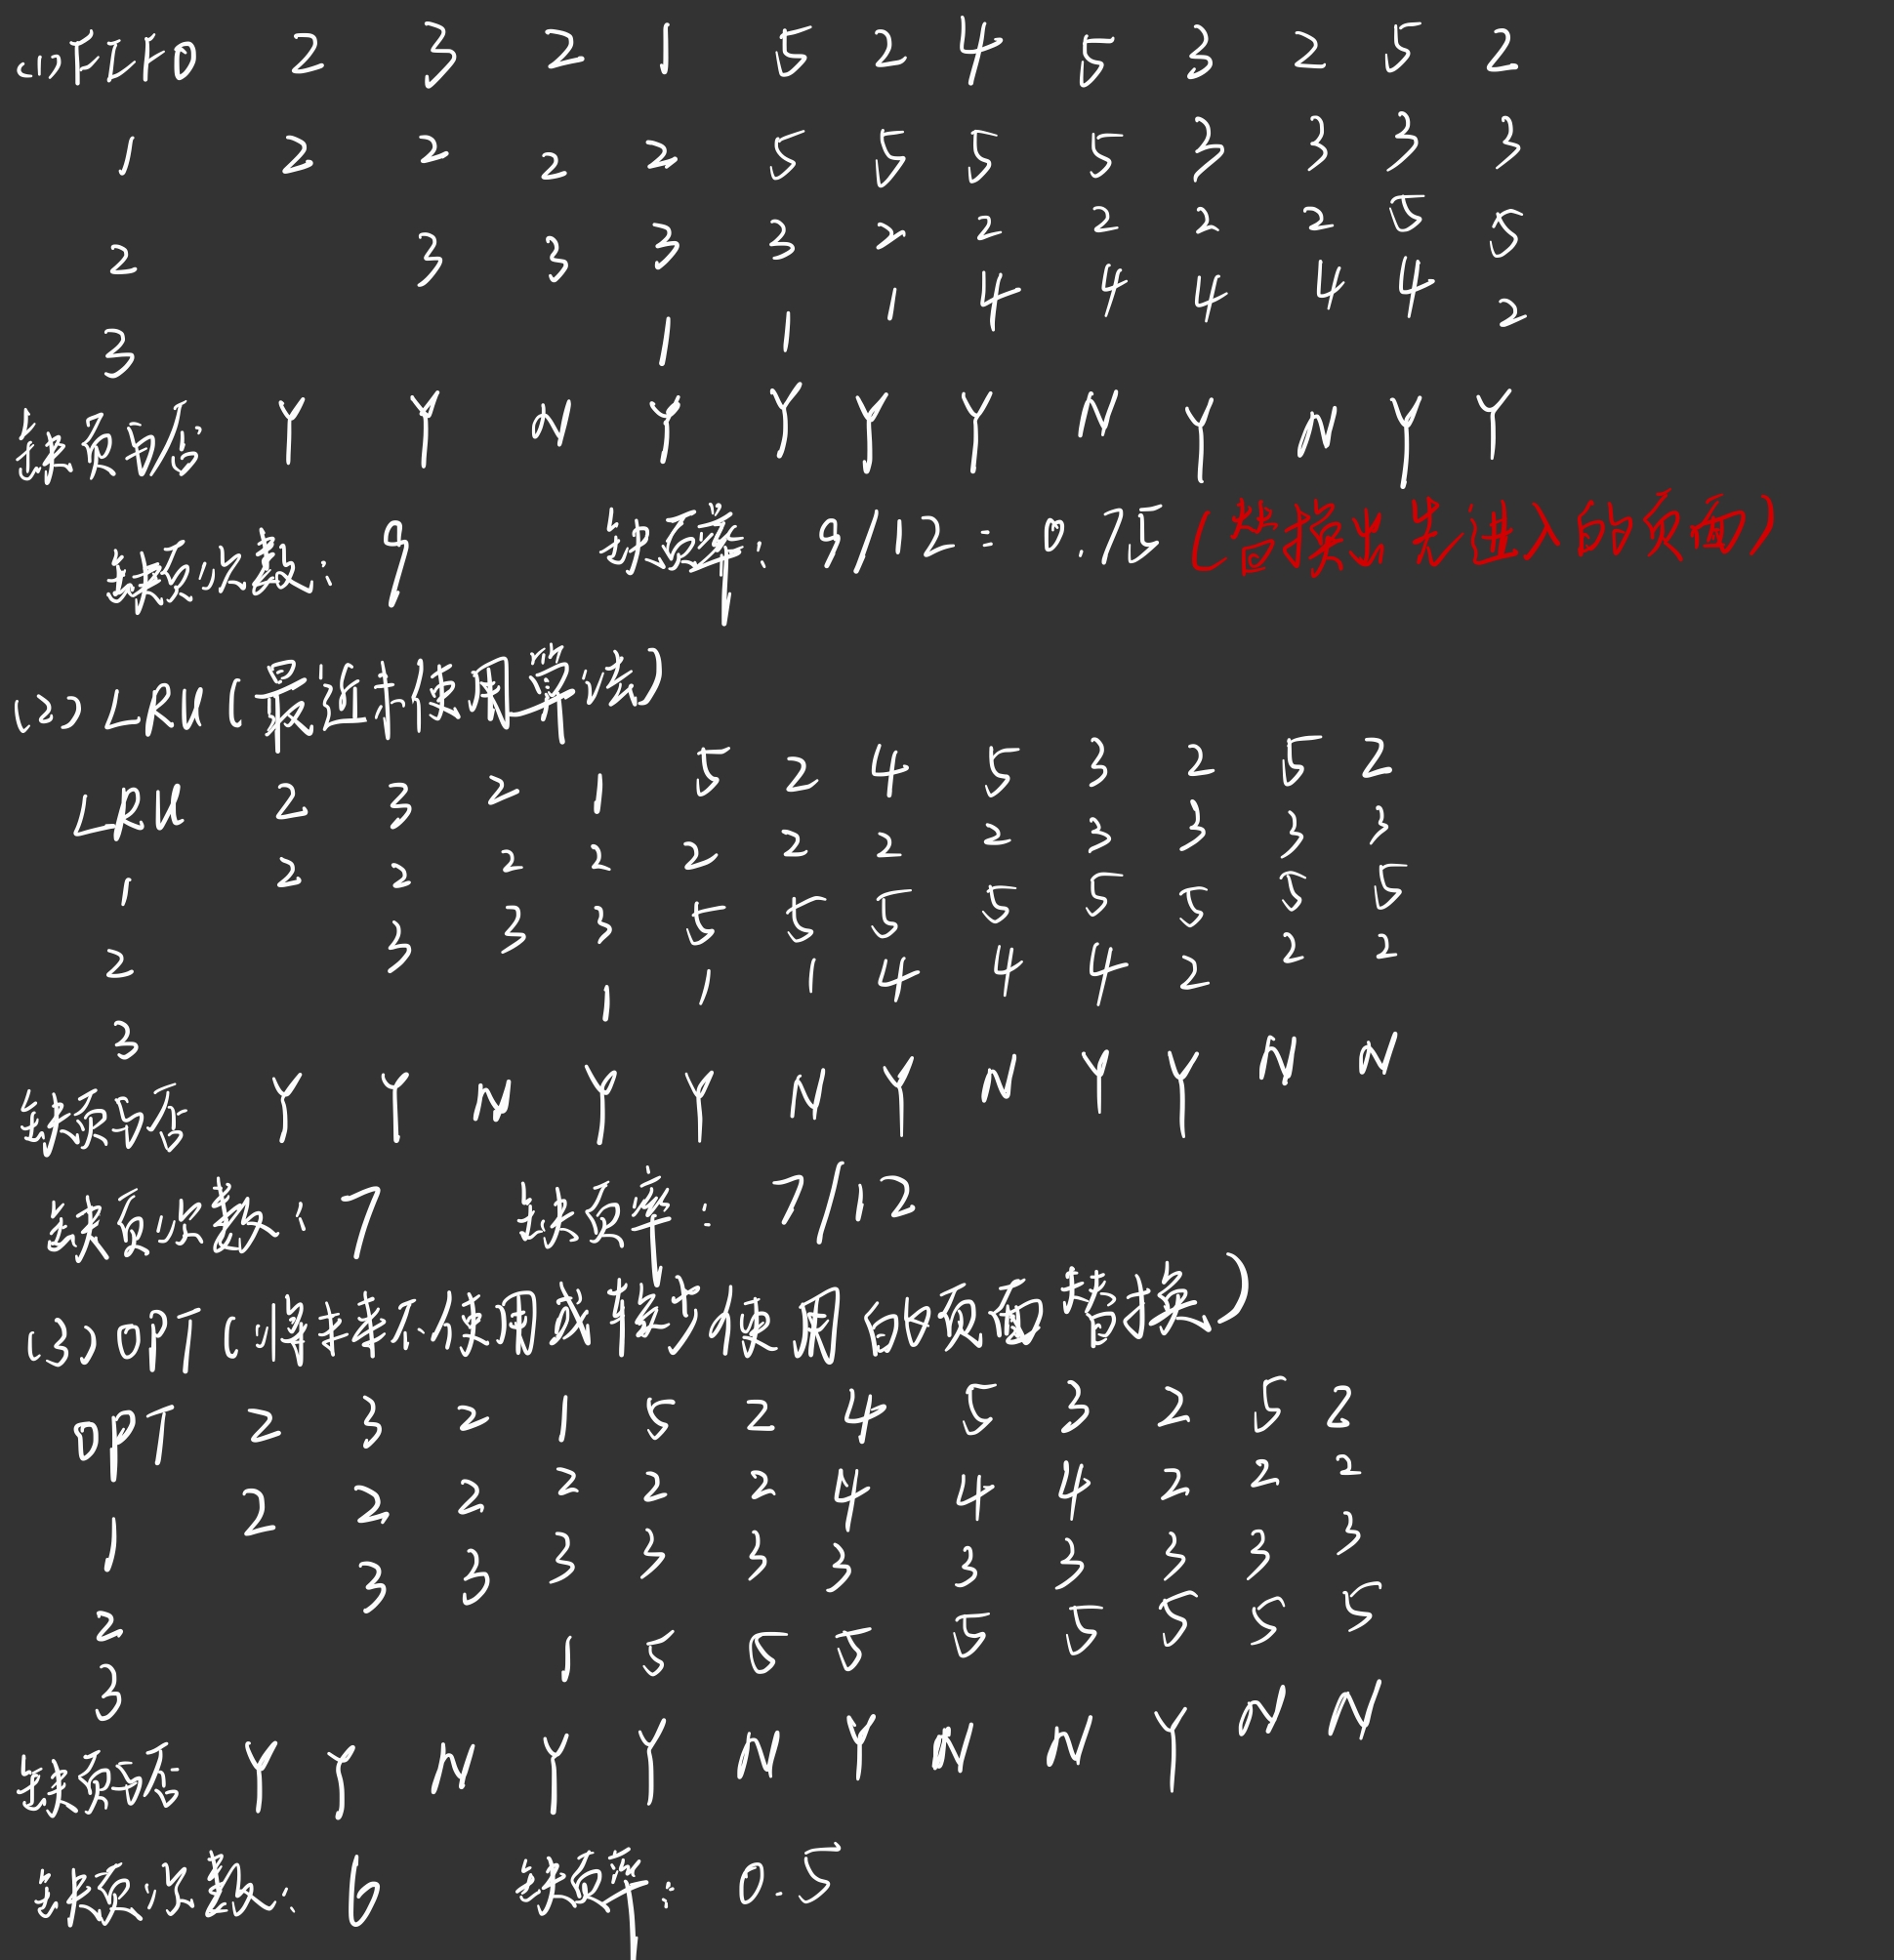 (1) FIFO 2 3 2 1 5 2 4 5 3 2 5 2
1 2 2 2 2 5 5 5 5 3 3 3 3
2 3 3 3 3 2 2 2 2 2 5 5
3 1 1 1 4 4 4 4 4 2
缺页中否 Y Y N Y Y Y Y N Y N Y Y
缺页次数: 9 缺页率: 9/12 = 0.75 (替换出先进入的页面)
(2) LRU (最近未使用算法)
LRU 2 3 2 1 5 2 4 5 3 2 5 2
1 2 2 2 2 2 2 2 2 3 3 3 3
2 3 3 3 5 5 5 5 5 5 5 5
3 1 1 1 4 4 4 2 2 2
缺页中否 Y Y N Y Y N Y N Y Y N N
缺页次数: 7 缺页率: 7/12
(3) OPT (将来不使用或将才使用的页面替换)
OPT 2 3 2 1 5 2 4 5 3 2 5 2
1 2 2 2 2 2 2 4 4 4 2 2 2
2 3 3 3 3 3 3 3 3 3 3 3
3 1 5 5 5 5 5 5 5 5
缺页否 Y Y N Y Y N Y N N Y N N
缺页次数: 6 缺页率: 0.5